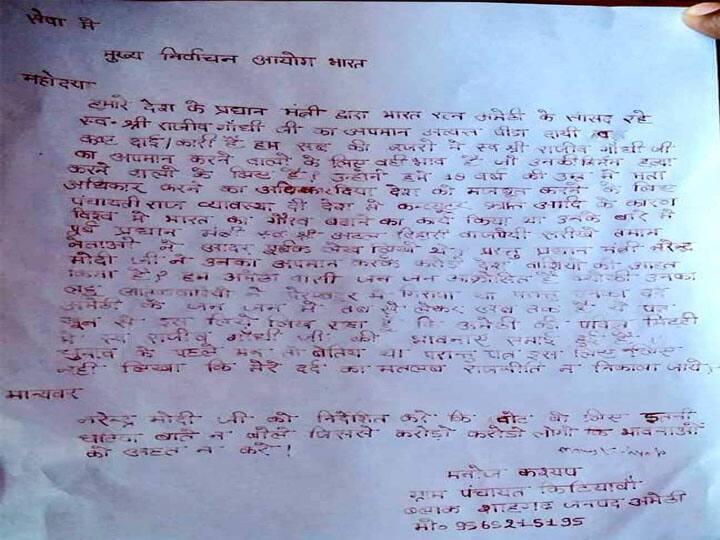 सेवा में
मुख्य निर्वाचन आयोग भारत
महोदया
हमारे देश के प्रधान मंत्री द्वारा भारत रत्न अमेठी के सांसद रहे
स्व॰ श्री राजीव गाँधी जी का अपमान अत्यन्त पीडा दायी व
कष्ट दाई/कारी है हम सब की नजरो में स्व श्री राजीव गाँधी जी
का अपमान करने वालो के लिए वही भाव है जो उनकी निर्मम हत्या
करने वालो के लिए है? उन्होने हमे 18 वर्ष की उम्र में मता
अधिकार करने का अधिकार दिया देश को मजबूत करने के लिए
पंचायती राज व्यवस्था दी देश में कम्प्यूटर क्रान्ति आदि के कारण
विश्व में भारत का गौरव बढाने का कार्य किया था उनके बारे में
पूर्व प्रधान मंत्री स्व श्री अटल बिहारी वाजपेयी सरीखे तमाम
नेताओ ने आदर पूर्वक लेख लिखे थे, परन्तु प्रधान मंत्री नरेन्द्र
मोदी जी ने उनका अपमान करके करोडो देश वाशियो को आहत
किया है? हम अमेठी वासी जन जन आक्रोशित है उनका
लहू ने में गिराया था परन्तु उनका दर्द
अमेठी के जन जन में तब से लेकर अब तक है ये पत्र
खून से इस लिए लिख रहा हूँ कि अमेठी की पावन मिट्टी
में स्व राजीव गाँधी जी की भावनाएं समाई हुई है
चुनाव के पहले मन तो था परन्तु पत्र इस लिए
नही लिखा कि मेरे दर्द का मतलब राजनीति न निकाला जाये,
मान्यवर
नरेन्द्र मोदी जी को निर्देशित करे कि वोट के लिए इतनी
घटिया बाते न बोले जिससे करोडो करोडो लोगो कि भावनाओं
को आहत न करे!
मनोज कश्यप
ग्राम पंचायत
ब्लाक शाहगढ जनपद अमेठी
मो॰ 9565215195